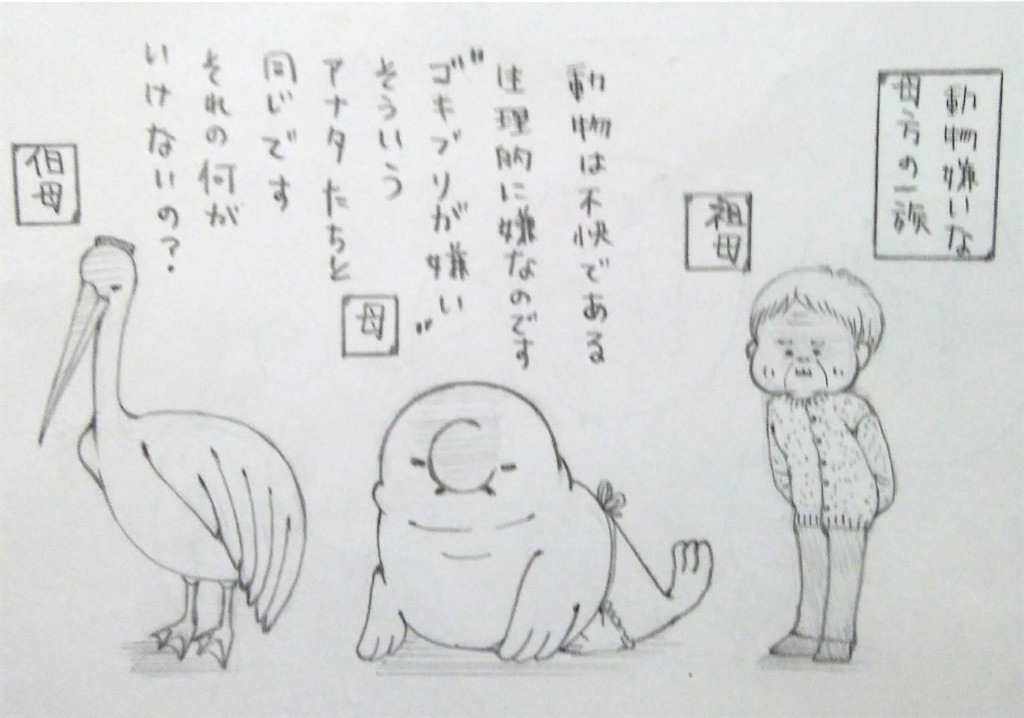 動物嫌いな
母方の一族
祖母
動物は不快である
生理的に嫌なのです
“ゴキブリが嫌い”
そういう
アナタたちと
同じです
それの何が
いけないの？
母
伯母